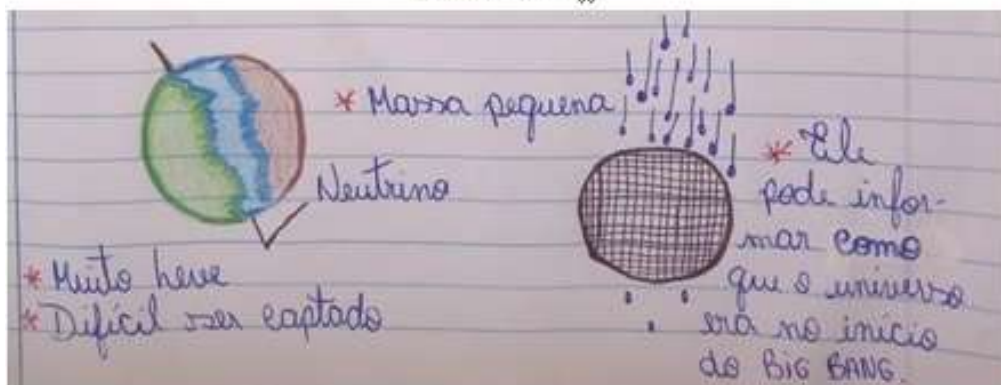 * Massa pequena
Neutrino
* Muito leve
* Difícil ser captado
* Ele
pode infor-
mar como
que o universo
era no início
do BIG BANG.